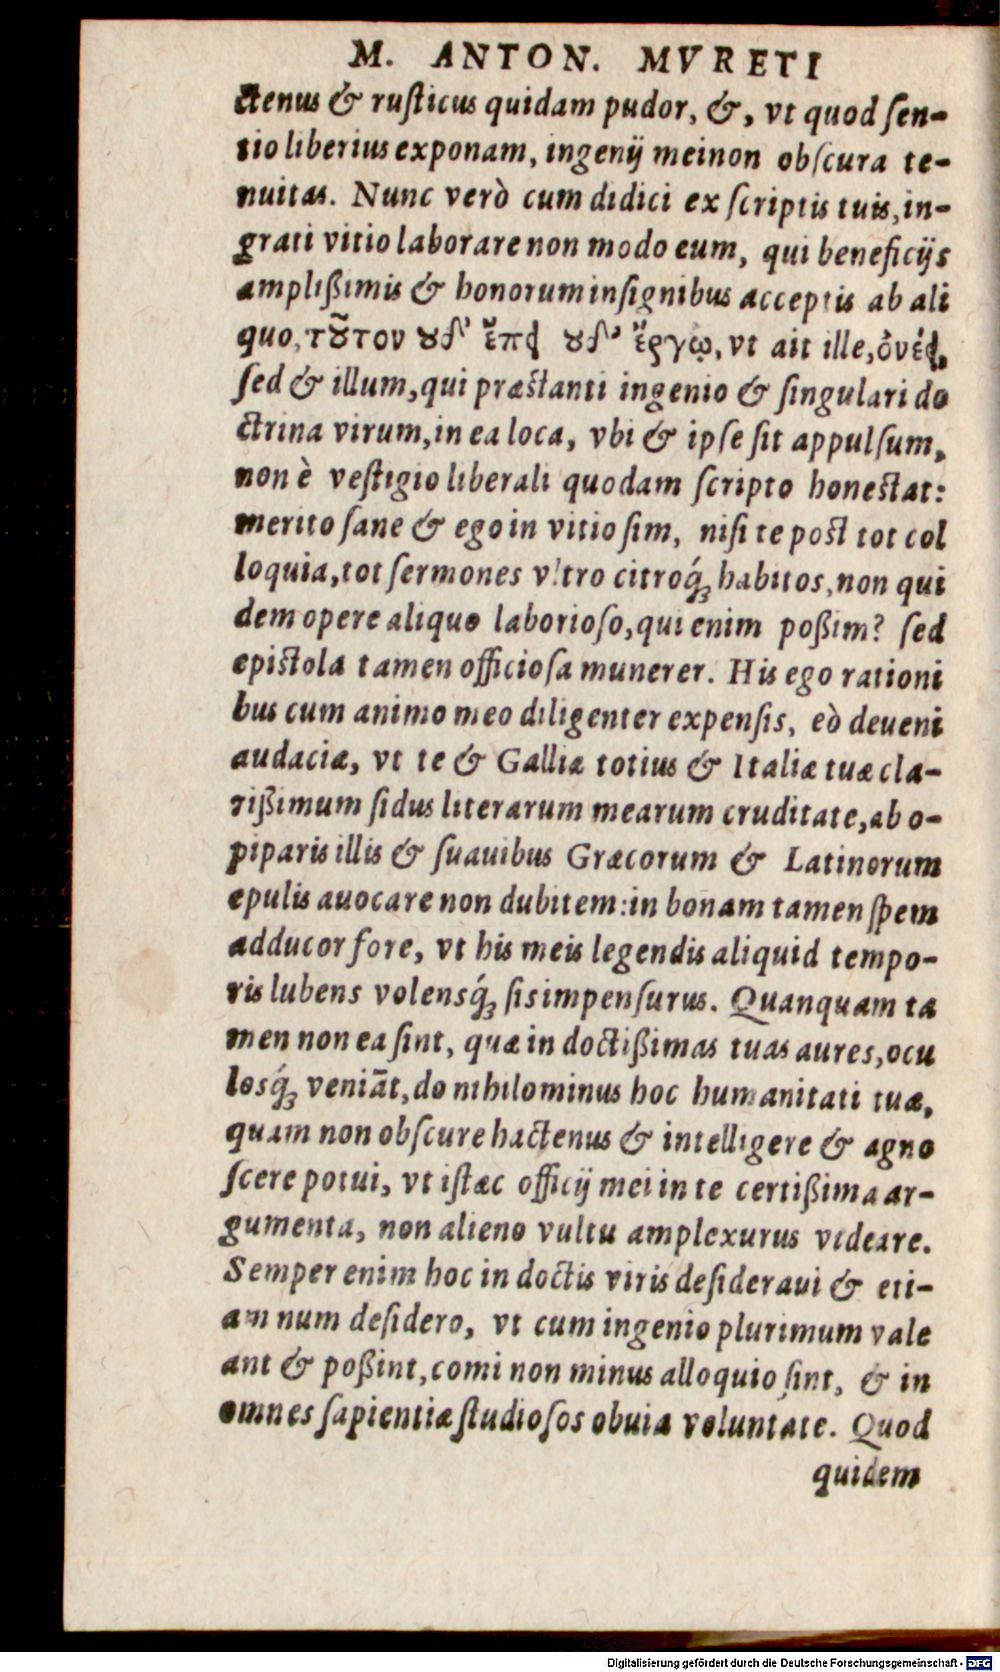 M. ANTON. MVRETI
ctenus & rusticus quidam pudor, &, vt quod sen-
tio liberius exponam, ingenij mei non obscura te-
nuitas. Nunc verò cum didici ex scriptis tuis, in-
grati vitio laborare non modo eum, qui beneficijs
amplißimis & honorum insignibus acceptis ab ali
quo, τοῦτον οὐδ' ἔπει οὐδ' ἔργῳ, vt ait ille, ὀνέει,
sed & illum, qui præstanti ingenio & singulari do
ctrina virum, in ea loca, vbi & ipse sit appulsum,
non è vestigio liberali quodam scripto honestat:
merito sane & ego in vitio sim, nisi te post tot col
loquia, tot sermones vltro citroq́ꝫ habitos, non qui
dem opere aliquo laborioso, qui enim poßim? sed
epistola tamen officiosa munerer. His ego rationi
bus cum animo meo diligenter expensis, eò deueni
audaciæ, vt te & Galliæ totius & Italiæ tuæ cla-
rißimum sidus literarum mearum cruditate, ab o-
piparis illis & suauibus Græcorum & Latinorum
epulis auocare non dubitem: in bonam tamen spem
adducor fore, vt his meis legendis aliquid tempo-
ris lubens volensq́ꝫ sis impensurus. Quanquam ta
men non ea sint, quæ in doctißimas tuas aures, ocu
losq́ꝫ veniāt, do nihilominus hoc humanitati tuæ,
quam non obscure hactenus & intelligere & agno
scere potui, vt istæc officij mei in te certißima ar-
gumenta, non alieno vultu amplexurus videare.
Semper enim hoc in doctis viris desideraui & eti-
am num desidero, vt cum ingenio plurimum vale
ant & poßint, comi non minus alloquio sint, & in
omnes sapientiæ studiosos obuia voluntate. Quod
quidem
Digitalisierung gefördert durch die Deutsche Forschungsgemeinschaft - DFG